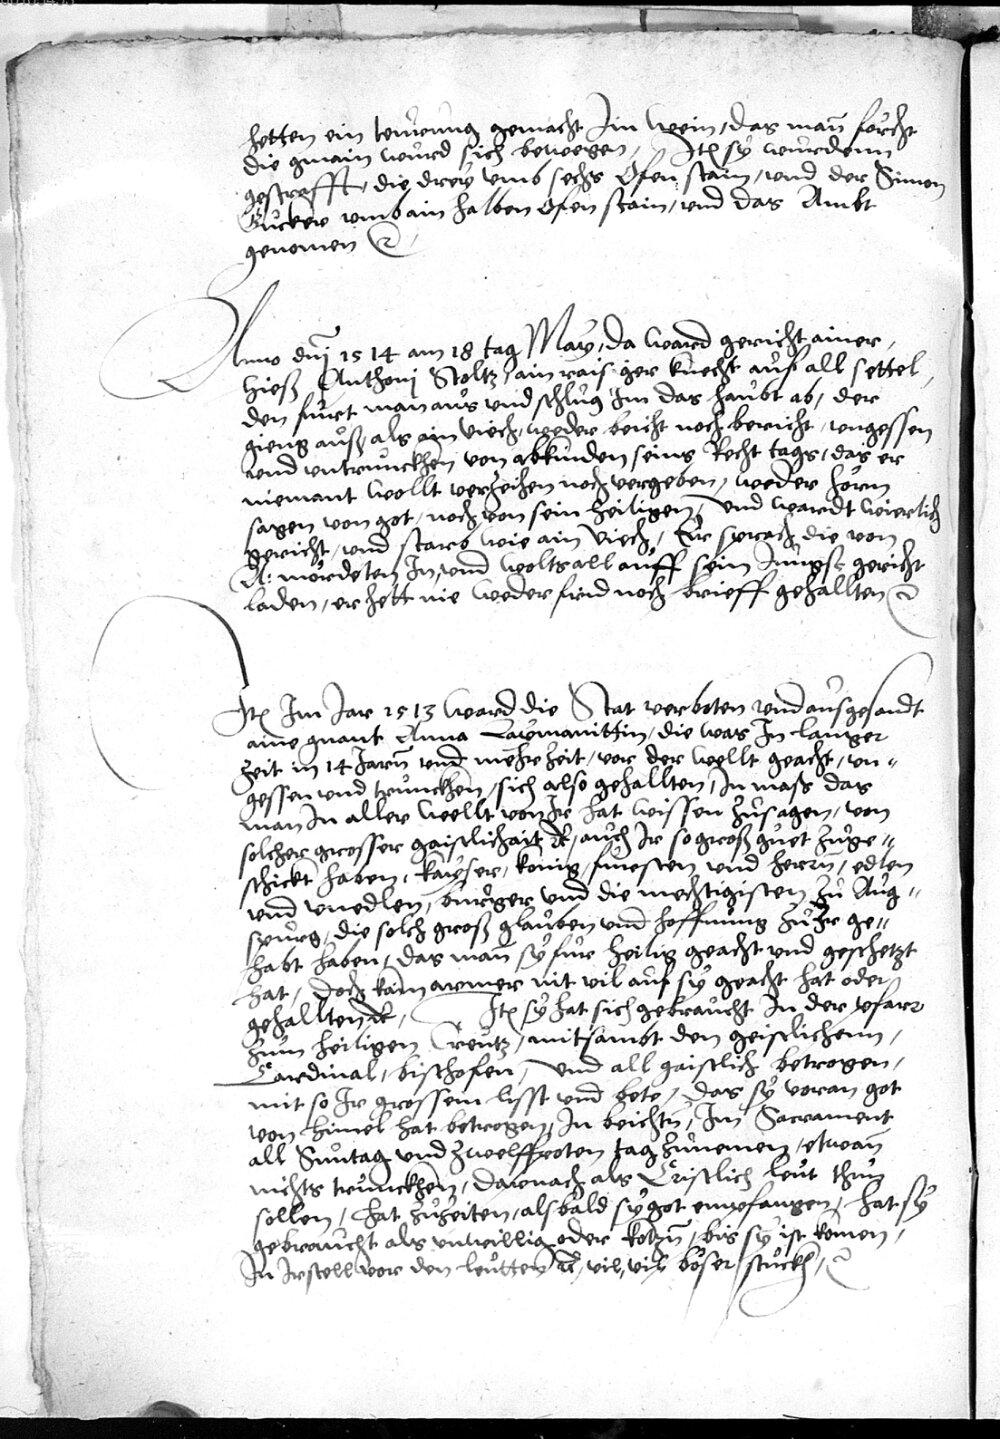 hetten ein tewrung gemacht Im wein, das man forcht
die gmain wurd sich bewegen, Itē sy wurdenn
gestrafft, die drey umb sechs Ofen stain, und der Simon
Zucker umb ain halben ofen stain, und das Ambt
genomen
Anno dnj 1514 am 18 tag May, da ward gericht ainer,
hieß Anthonj Stoltz, ain raisiger knecht auf all settel,
den furt man aus und schlug im das haubt ab, der
gieng auß als ain viech, weder beicht noch bericht, ungessen
und untrunckhen von abkunden seins Recht tags, das er
niemant wollt verzeihen noch vergeben, weder horn
sagen von got, noch von sein heiligen, und wardt weierlich
gericht, und starb wie ain viech, Er sprach die von
A: mordeten In, und wolts all auff sein Jungst gericht
laden, er hett nie weder frid noch brieff gehallten
Itē Im Jar 1513 ward die Stat verboten und ausgesandt
aine gnant Anna Laymanittin, die was In langer
Zeit in 14 Jarn und mehr Zeit, vor der wellt geacht, un=
gessen und trunckhen, sich also gehallten, In maß das
man In aller wellt von Ir hat wissen zusagen, von
solcher grosser gaistlichait ec, auch Ir so groß guet zuge=
schickt haben, kayser, konig, fursten und herrn, edlen
und unedlen, burger und die mechtigisten zu Aug=
spurg, die solch groß glauben und hoffnung zu Ir ge=
habt haben, das man sy fur heilig geacht und geschetzt
hat, doch kain armer nit vil auf sy geacht hat oder
gehallten ec, Itē sy hat sich gebraucht In der pfarr
zum heiligen Creutz, mitsambt den geistlichenn,
Cardinal, bischofen, und all gaistlich betrogen,
mit so Ir grossem lisst und bete, das sy voran got
von himel hat betrogen, In beichtn, Im Sacrament
all Suntag und zwelffpoten tag zunemen, etwan
nichts trunckhen, darnach als Cristlich leut thun
sollen, hat zuzeiten, alsbald sy got empfangen, hat sy
gebraucht als unwillig oder kotzn, bis sy ist komen,
In Ir stell vor den leutten ec, vil, vil boser stuckh,